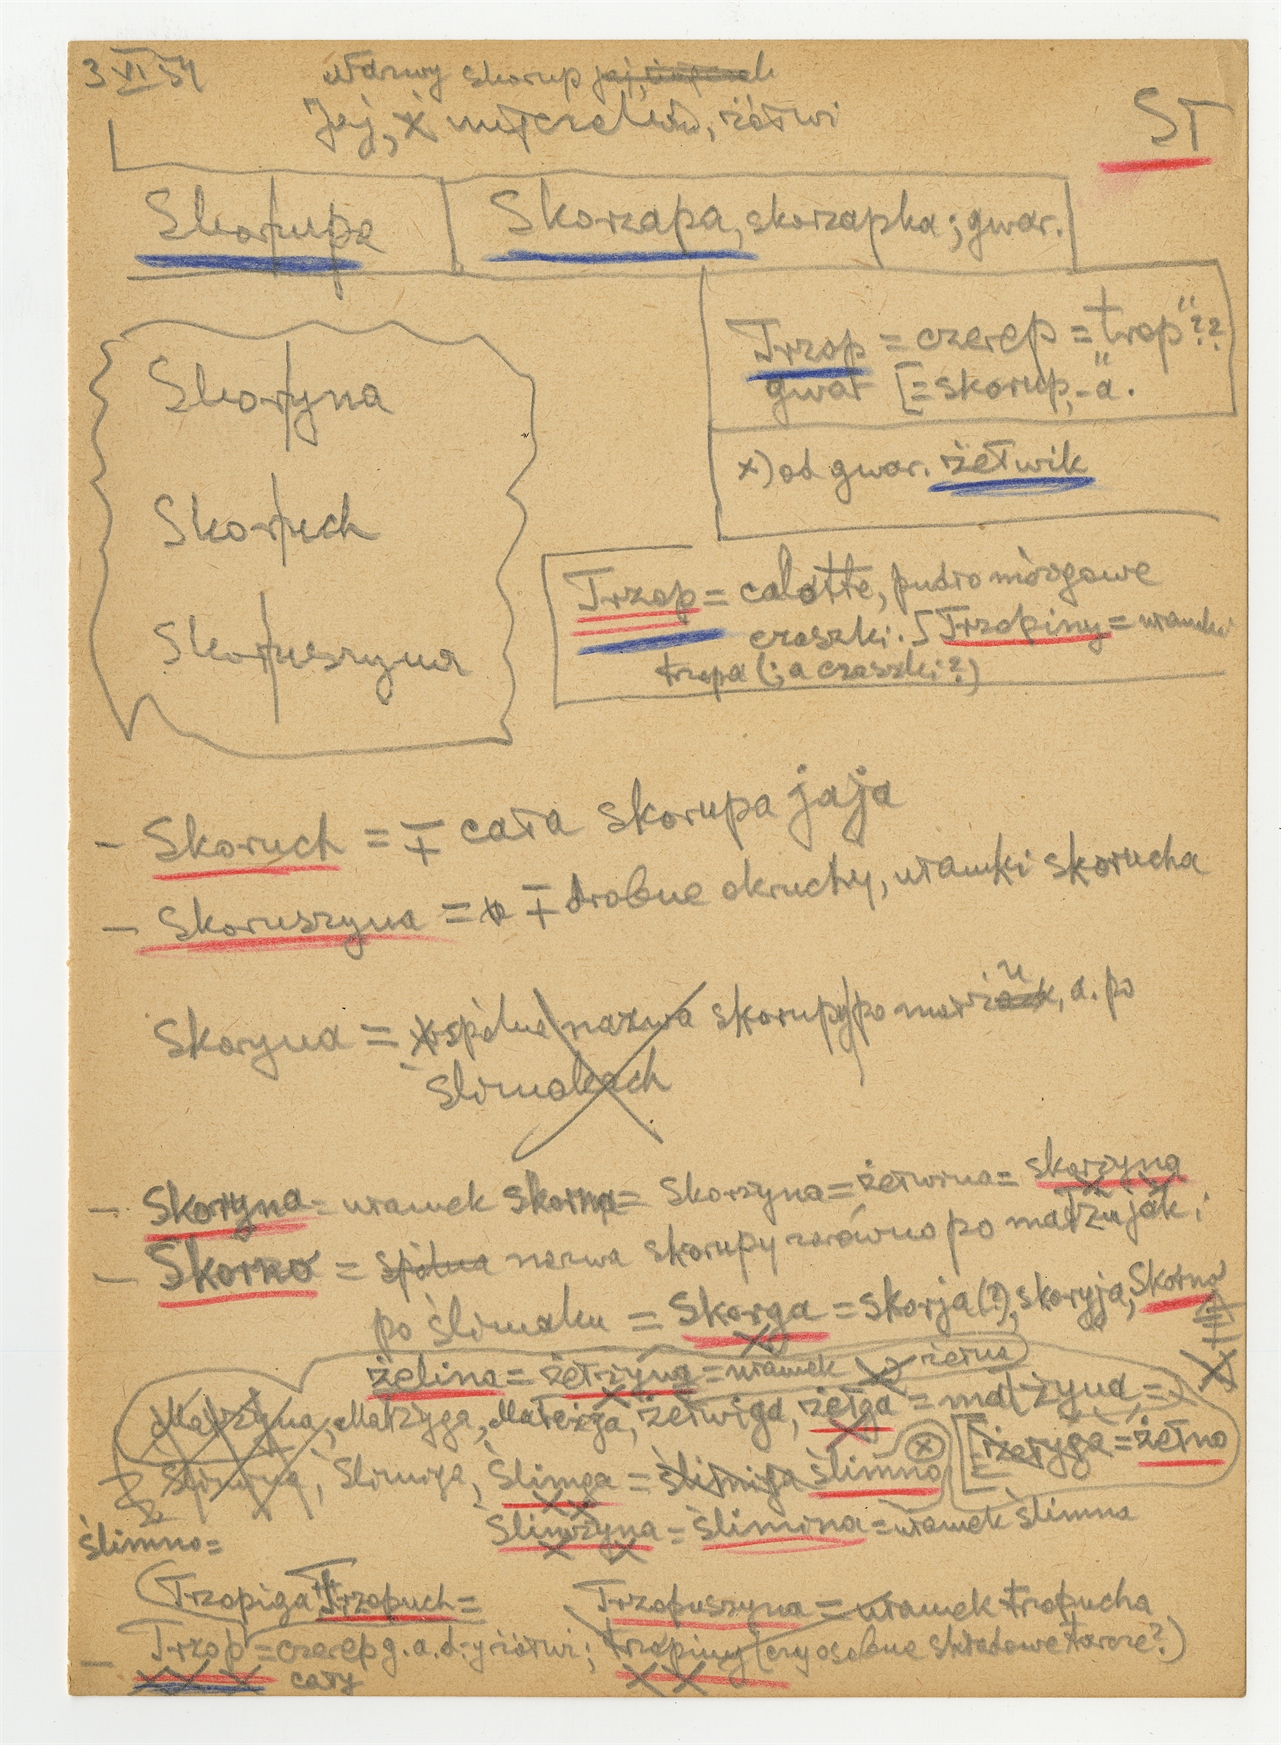 3 VI 54
skorup jaj,
Jaj, żółwi
ST
Skorupa
Skorzapa, skorzapka; gwar.
Trzop = czerep = "trop"??
gwar [= skorup, -a.
x) od gwar. żełwik
Skoryna
Skoruch
Skoruszyna
Trzop = calotte, pudło mózgowe
czaszki. Trzopiny = ułamki
trzopa (; a czaszki?)
- Skoruch = ∓ cała skorupa jaja
- Skoruszyna = ∓ drobne okruchy, ułamki skorucha
Skoryna = wspólna nazwa skorupy po a. po
ślimakach
- Skoryna = ułamek skorna = Skorzyna = żełwina = skorzyna
- Skorno = spólna nazwa skorupy zarówno po małżu jak i
po ślimaku = Skorga = skorja (?), skoryja, Skorno
żelina = żełżyna = ułamek żełna
Małżyna, Małżyga, żełwiga, żełga = małżyna =
[żełyga = żełno
Ślimyna, Ślimiga, Ślimga = ślimiga ślimno (x)
Ślimżyna = ślimina = ułamek ślimna
ślimno =
Trzopiga Trzopuch =
Trzopuszyna = ułamek trzopucha
- Trzop = czerep g. a. d. y żółwi; trzopiny (czy osobne składowe tarcze?)
cały